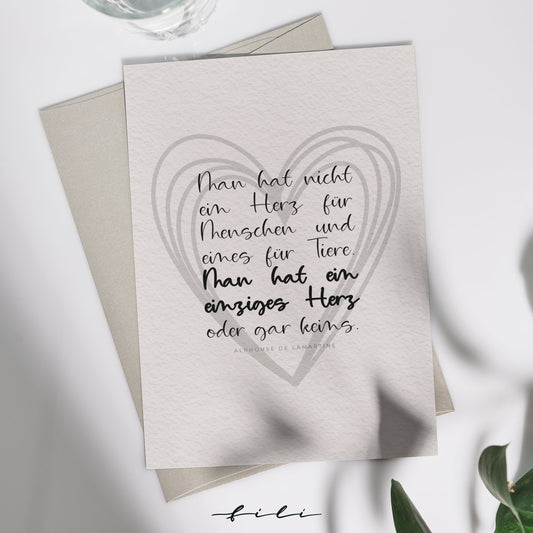 Man hat nicht
ein Herz für
Menschen und
eines für Tiere.
Man hat ein
einziges Herz
oder gar keins.
ALPHONSE DE LAMARTINE
fili